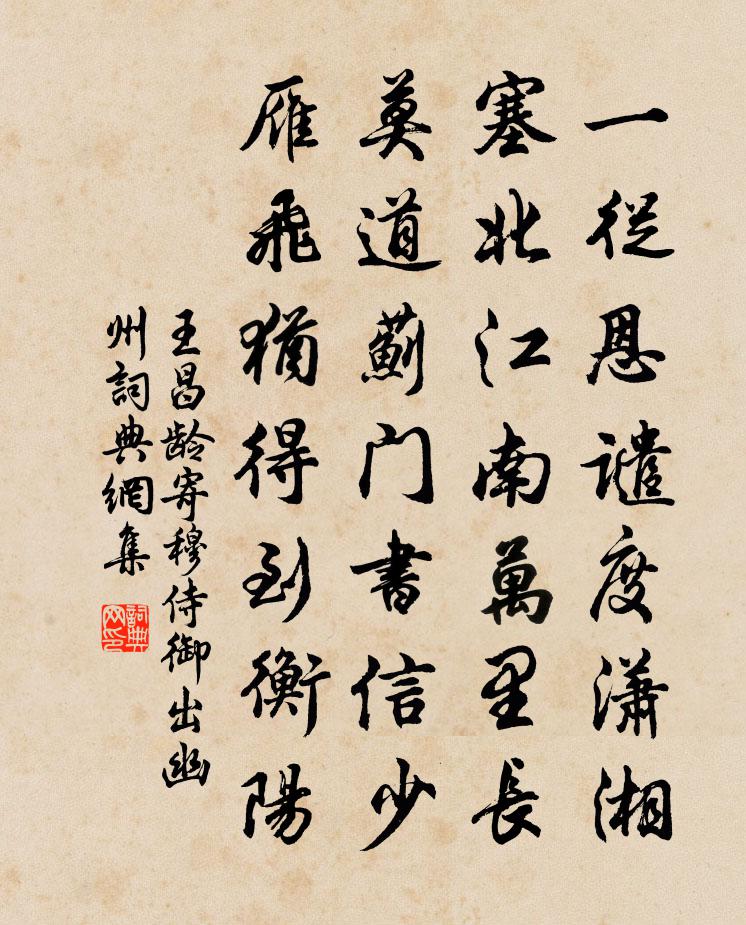 一從恩譴度瀟湘
塞北江南萬里長
莫道薊門書信少
雁飛猶得到衡陽
王昌齡寄穆侍御出幽
州詞典網集
詞典网印